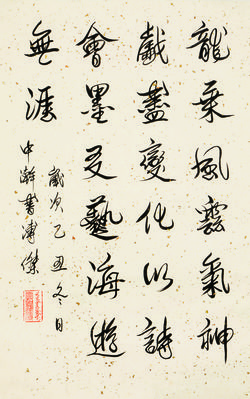 龍乘風雲氣神
戲盡變化以詩
會墨友藝海遊
無涯
歲次乙丑冬日
中游書溥傑